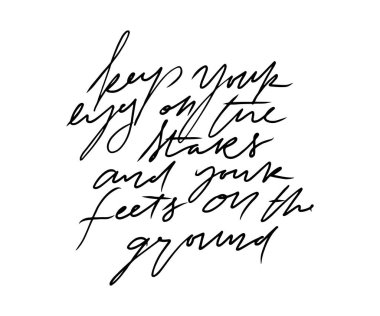 keep your
eyy on the
stars
and your
feets on the
ground